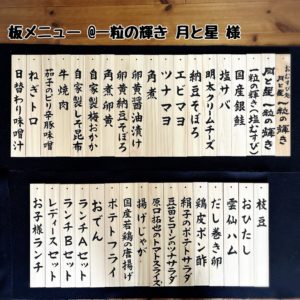 板メニュー @一粒の輝き 月と星 様
おむすび
月と星 一粒の輝き
月と星 一粒の輝き
一粒の輝き(塩むすび)
国産銀鮭
塩サバ
明太クリームチーズ
納豆そぼろ
エビマヨ
ツナマヨ
角煮
卵黄醤油漬け
卵黄納豆そぼろ
角煮卵黄
自家製梅おかか
自家製しそ昆布
牛焼肉
茄子のピリ辛豚味噌
ねぎトロ
日替わり味噌汁
枝豆
おひたし
雲仙ハム
だし巻き卵
鶏皮ポン酢
絹子のポテトサラダ
豆苗とコーンのツナサラダ
原口拓也のトマトスライス
揚げじゃが
国産若鶏の唐揚げ
ポテトフライ
おでん
ランチAセット
ランチBセット
レディースセット
お子様ランチ